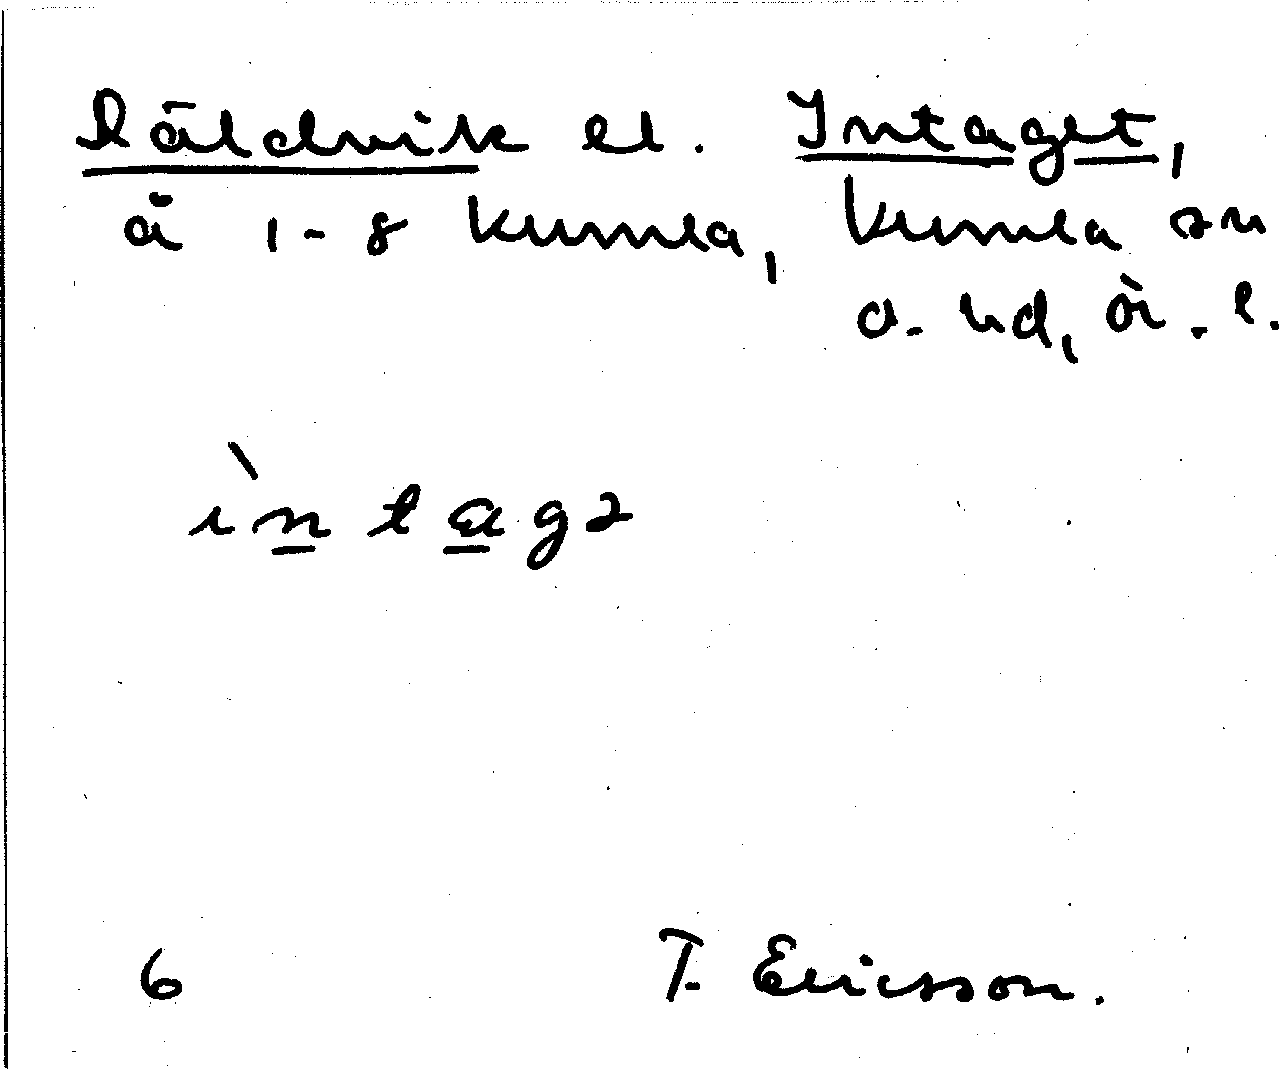 Räldvik el. Intaget,
å 1-8 Kumla, Kumla sn
o. hd, Ör. l.
ìntagə
6 T. Ericsson.